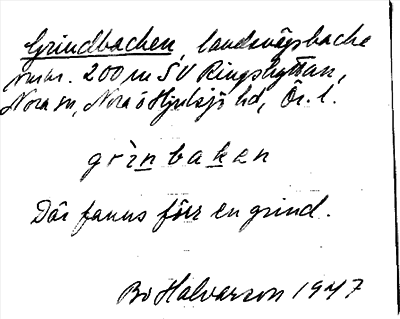 Grindbacken, landsvägsbacke
omkr. 200 m SV Ringshyttan,
Nora sn, Nora o Hjulsjö hd, Ör. l.
grìnbaken
Där fanns förr en grind.
Bo Halvarson 1947